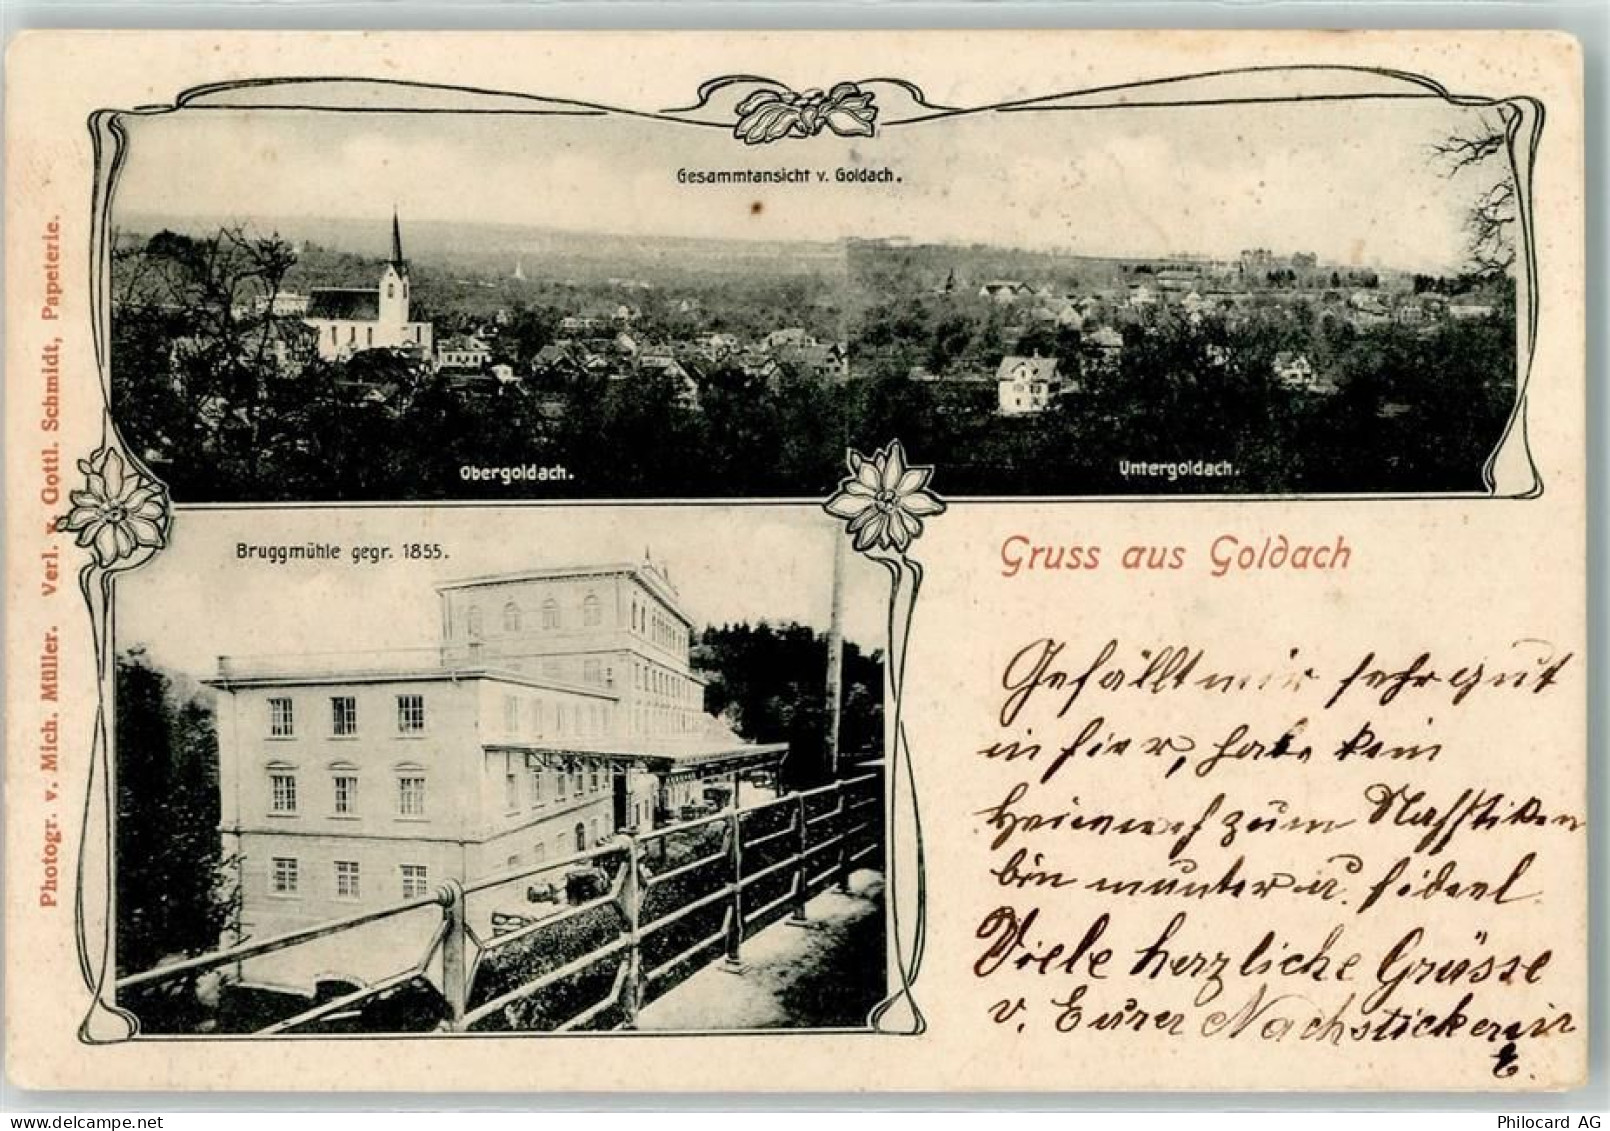 Gesammtansicht v. Goldach.
Obergoldach.
Untergoldach.
Bruggmühle gegr. 1855.
Gruss aus Goldach
Photogr. v. Mich. Müller. Verl. v. Gottl. Schmidt, Papeterie.
Gefällt mir sehr gut
in hier, habe kein
Heimweh zum Nachstiken
bin munter u. fideel
Viele herzliche Grüsse
v. Eurer Nachstickerin
E.
Philocard AG